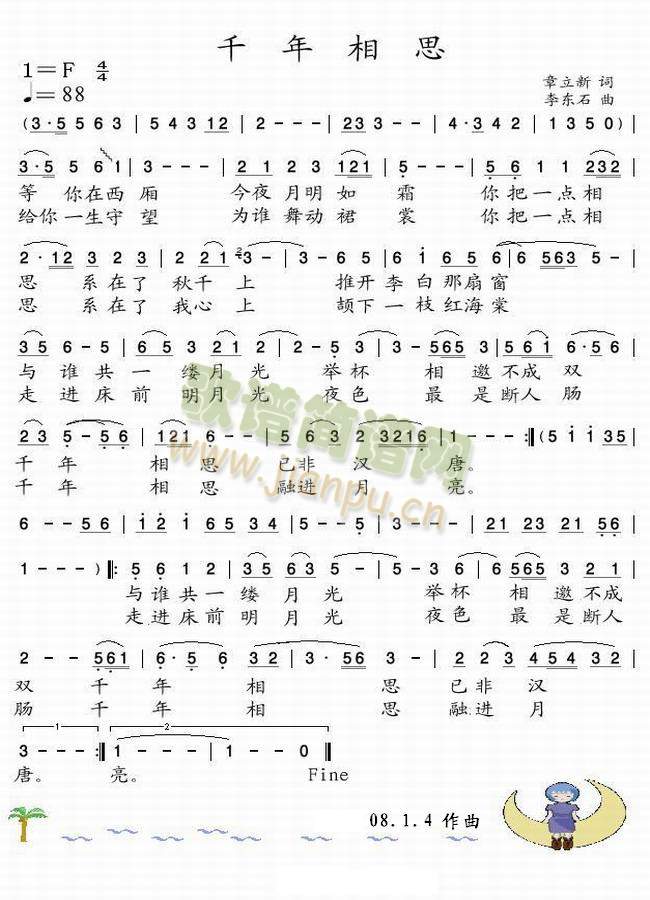 千年相思
1=F 4/4
♩=88
章立新 词
李东石 曲
(3·5 5 6 3 | 5 4 3 12 | 2 - - - | 23 3 - - | 4·3 4 2 | 1 3 5 0) |
3·5 5 6 1 | 3 - - - | 2 1 2 3 | 121 5 - - - | 5 6 1 232 |
等 你在西厢 今夜月明如霜 你把一点相
给你一生守望 为谁舞动裙裳 你把一点相
2·12 3 2 3 | 2 21 3 - | 3 - 6 5 | 6 1 656 | 6 563 5 - |
思 系在了 秋千上 推开李白那扇窗
思 系在了 我心上 颉下一枝红海棠
35 6 - 5 |
与谁共一缕月光 举杯相邀不成双
走进床前明月光 夜色最是断人肠
23 5 - 56 | 121 6 - - | 5 63 2 3216 | 1 - - - :‖ (5 1 1 35 |
千年相思已非汉唐。
千年相思融进月亮。
6 - - 56 | 12 1 65 34 | 5 - - 5 | 3 - - - | 21 23 21 56 |
1 - - - ) ‖: 5 6 1 2 | 35 63 5 - | 5 - 3 6 | 6 565 3 2 1 |
与谁共一缕月光 举杯相邀不成
走进床前明月光 夜色最是断人
2 - - 561 | 6·5 6 32 | 3 - 3 56 | 3 - 2 23 | 5 54 3 32 |
双 千年相思已非汉
肠 千年相思融进月
1 2
3 - - - :‖ 1 - - - | 1 - - 0 ‖
唐。 亮。 Fine
歌谱简谱网
www.jianpu.cn
08.1.4 作曲